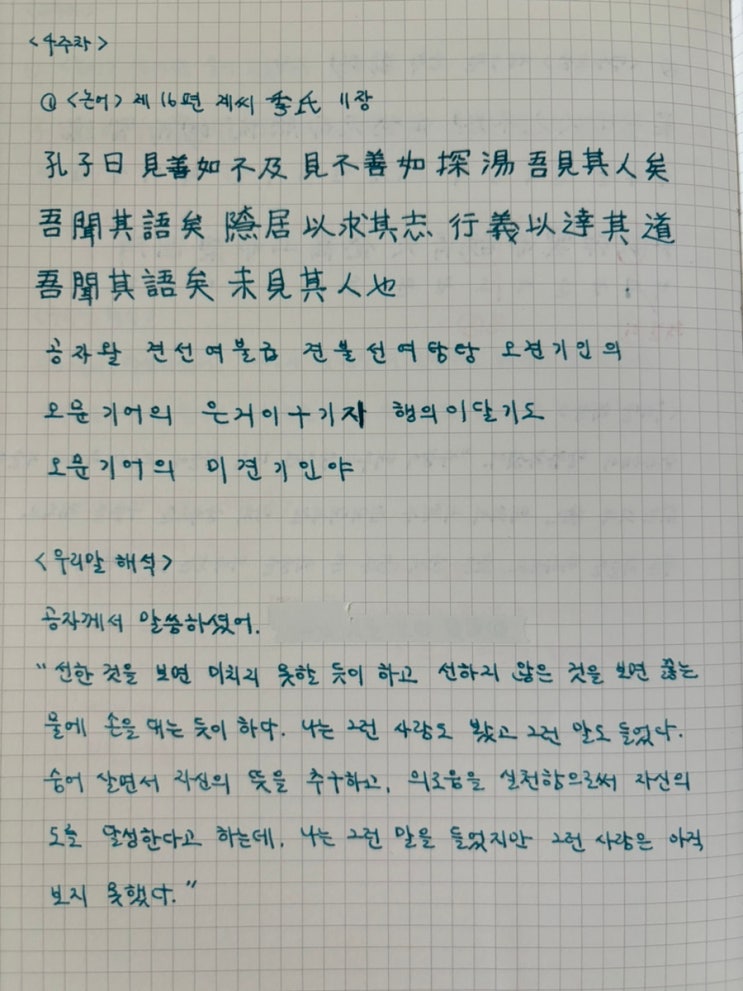 <4주차>
① <논어> 제 16편 계씨 季氏 11장
孔子曰 見善如不及 見不善如 探湯 吾見其人矣
吾聞其語矣 隱居以求其志 行義以達其道
吾聞其語矣 未見其人也
공자왈 견선여불급 견불선여탐탕 오견기인의
오문기어의 은거이구기지 행의이달기도
오문기어의 미견기인야
<우리말 해석>
공자께서 말씀하셨어.
"선한 것을 보면 미치지 못할 듯이 하고 선하지 않은 것을 보면 끓는
물에 손을 대는 듯이 하다. 나는 그런 사람도 봤고 그런 말도 들었다.
숨어 살면서 자신의 뜻을 추구하고, 의로움을 실천함으로써 자신의
도를 달성한다고 하는데, 나는 그런 말을 들었지만 그런 사람은 아직
보지 못했다."